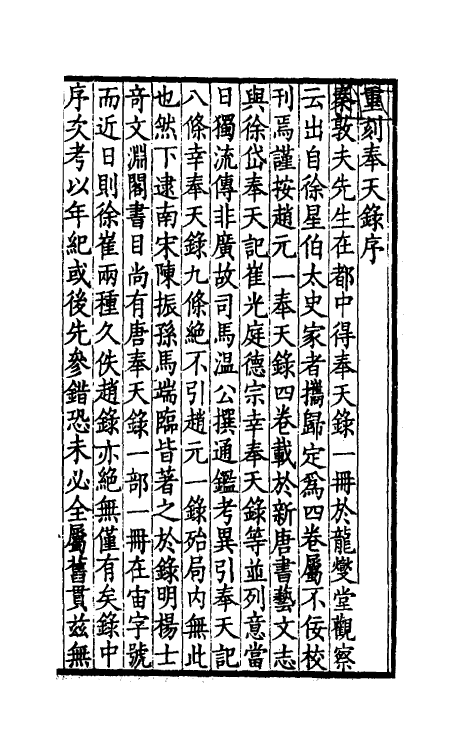 重刻奉天錄序
秦敦夫先生在都中得奉天錄一冊於龍燮堂觀察
云出自徐星伯太史家者攜歸定爲四卷屬不佞校
刊焉謹按趙元一奉天錄四卷載於新唐書藝文志
與徐岱奉天記崔光庭德宗幸奉天錄等並列意當
日獨流傳非廣故司馬溫公撰通鑑考異引奉天記
八條幸奉天錄九條絕不引趙元一錄殆局内無此
也然下逮南宋陳振孫馬端臨皆著之於錄明楊士
奇文淵閣書目尚有唐奉天錄一部一冊在宙字號
而近日則徐崔兩種久佚趙錄亦絕無僅有矣錄中
序㳄考以年紀或後先參錯恐未必全屬舊貫茲無